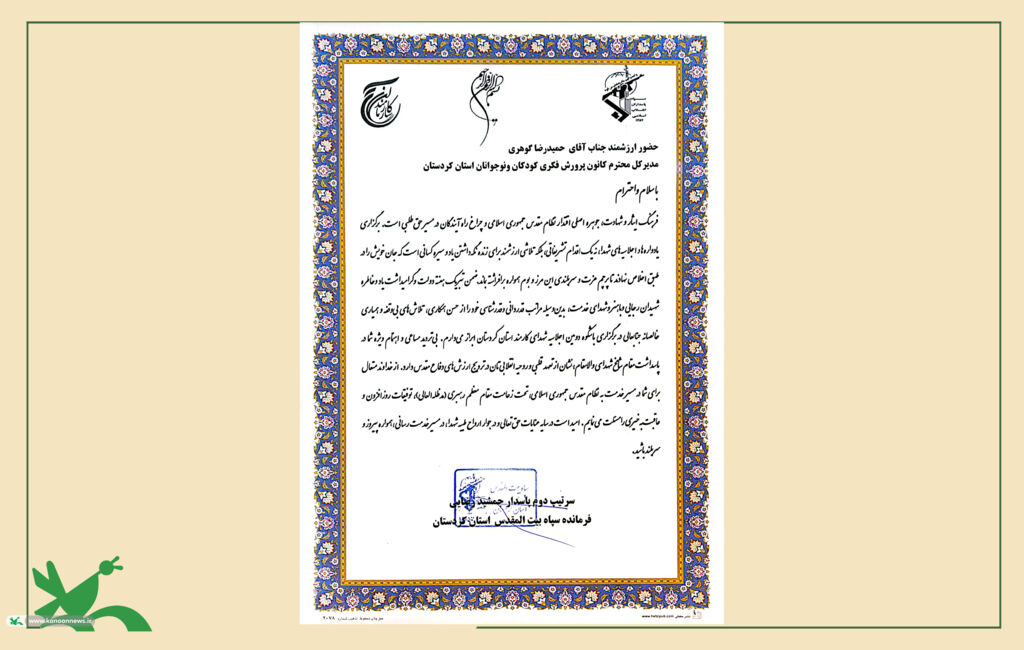 حضور ارزشمند جناب آقای حمیدرضا گوهری
مدیرکل محترم کانون پرورش فکری کودکان ونوجوانان استان کردستان
با سلام و احترام
فرهنگ ایثار و شهادت، جوهره اصلی اقتدار نظام مقدس جمهوری اسلامی و چراغ راه آیندگان در مسیر حق طلبی است. برگزاری
یادواره‌ها و اجلاسیه‌های شهدا، نه یک اقدام تشریفاتی، بلکه تلاشی ارزشمند برای زنده نگه داشتن یاد و سیره کسانی است که جان خویش را در
طبق اخلاص نهادند تا پرچم عزت و سربلندی این مرز و بوم همواره برافراشته بماند. ضمن تبریک هفته دولت و گرامیداشت یاد و خاطره
شهیدان رجایی و باهنر و شهدای خدمت، بدین وسیله مراتب قدردانی و قدرشناسی خود را از حسن همکاری، تلاش‌های بی‌وقفه و همیاری
خالصانه جنابعالی در برگزاری باشکوه دومین اجلاسیه شهدای کارمند استان کردستان ابراز می‌دارم. بی‌تردید مساعی و اهتمام ویژه شما در
پاسداشت مقام شامخ شهدای والامقام، نشان از تعهد قلبی و روحیه انقلابی‌تان در ترویج ارزش‌های دفاع مقدس دارد. از خداوند متعال
برای شما در مسیر خدمت به نظام مقدس جمهوری اسلامی، تحت زعامت مقام معظم رهبری (مدظله‌العالی)، توفیقات روزافزون و
عاقبت به خیری را مسئلت می‌نمایم. امید است در سایه عنایات حق تعالی و در جوار ارواح طیبه شهدا، در مسیر خدمت رسانی، همواره پیروز و
سربلند باشید.
سرتیپ دوم پاسدار جمشید رضایی
فرمانده سپاه بیت المقدس استان کردستان
www.kanoonnews.ir